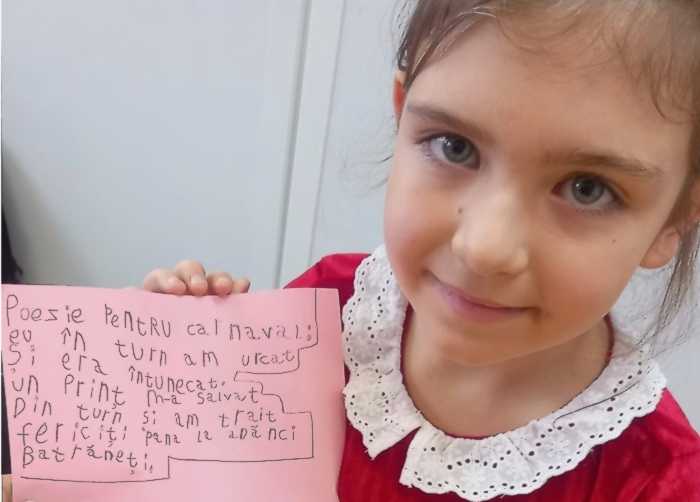 Poezie PENTRU carnaval:
eu în turn am urcat
Și era întunecat.
un Prinț m-a salvat
Din turn și am trait
fericiți pana la adănci
Batrăneți.